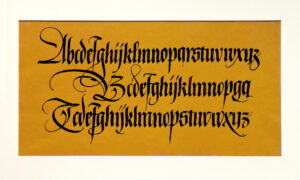 Abcdefghijklmnopqrstuvwxyz
Bcdefghijklmnopqq
Tcdefghijklmnopstuvwxyz